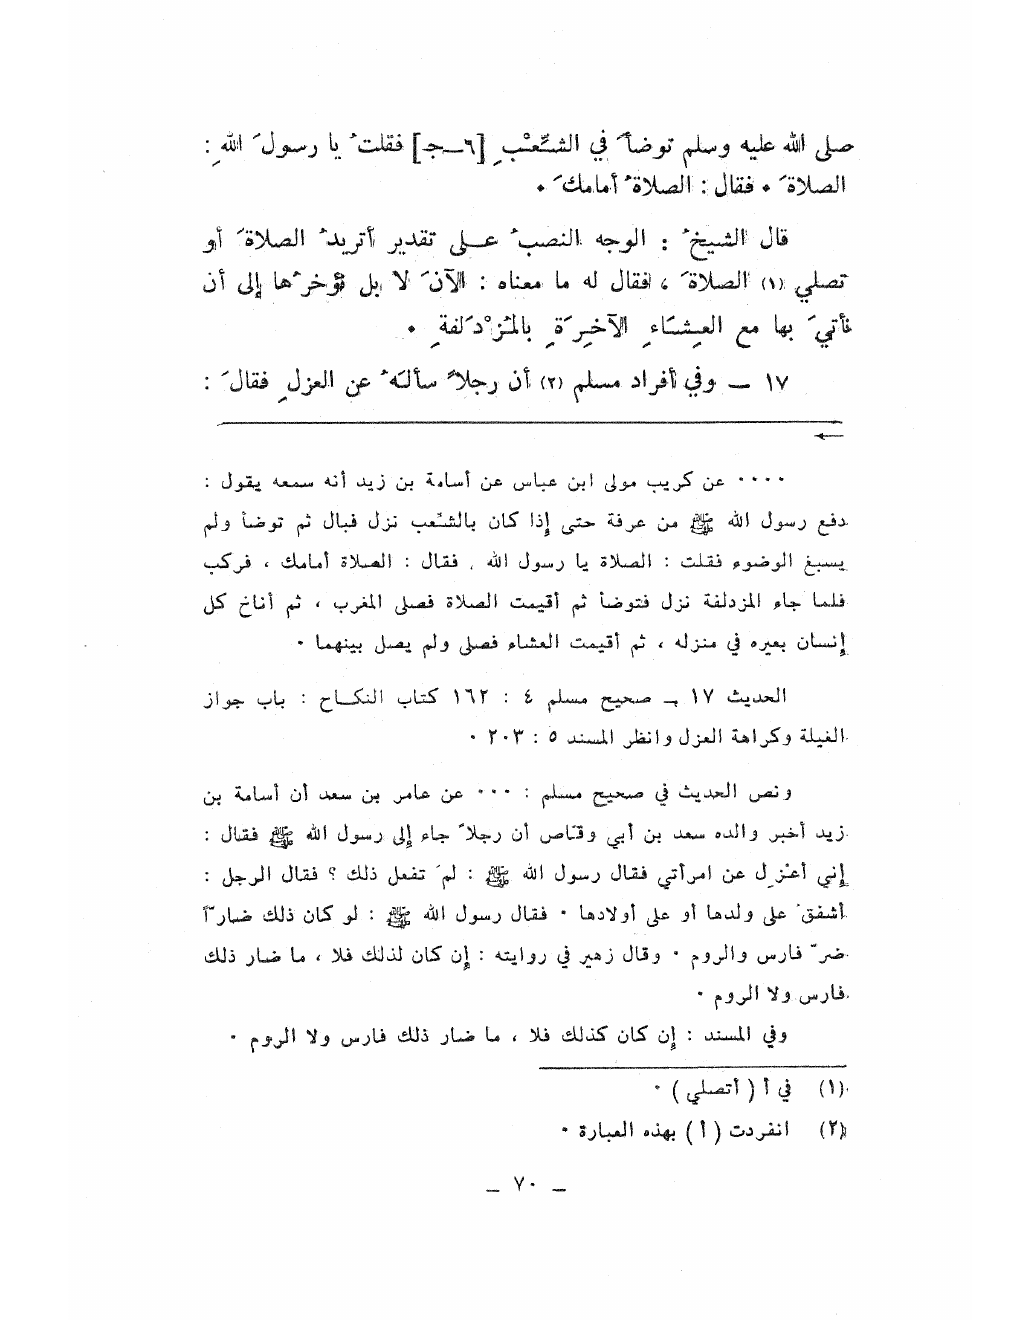 صلى الله عليه وسلم توضأَ في الشِّعْبِ [٦ــجـ] فقلتُ يا رسولَ اللهِ :
الصلاةَ . فقال : الصلاةُ أمامكَ .
قال الشيخُ : الوجه النصبُ عـلـى تقدير أتريدُ الصلاةَ أو
تصلي (١) الصلاةَ ، فقال له ما معناه : الآنَ لا بل نُؤخرُها إلى أن
نأتيَ بها مع العِشَاءِ الآخِرَةِ بالمُزْدَلفةِ .
١٧ ــ وفي أفراد مسلم (٢) أن رجلاً سألَهُ عن العزلِ فقالَ :
←
.... عن كريب مولى ابن عباس عن أسامة بن زيد أنه سمعه يقول :
دفع رسول الله ﷺ من عرفة حتى إذا كان بالشِّعب نزل فبال ثم توضأ ولم
يسبغ الوضوء فقلت : الصلاة يا رسول الله . فقال : الصلاة أمامك ، فركب
فلما جاء المزدلفة نزل فتوضأ ثم أقيمت الصلاة فصلى المغرب ، ثم أناخ كل
إنسان بعيره في منزله ، ثم أقيمت العشاء فصلى ولم يصل بينهما .
الحديث ١٧ ــ صحيح مسلم ٤ : ١٦٢ كتاب النكــاح : باب جواز
الغيلة وكراهة العزل وانظر المسند ٥ : ٢٠٣ .
ونص الحديث في صحيح مسلم : ... عن عامر بن سعد أن أسامة بن
زيد أخبر والده سعد بن أبي وقّاص أن رجلاً جاء إلى رسول الله ﷺ فقال :
إني أعْزِل عن امرأتي فقال رسول الله ﷺ : لمَ تفعل ذلك ؟ فقال الرجل :
أشفقُ على ولدها أو على أولادها . فقال رسول الله ﷺ : لو كان ذلك ضارّاً
ضرّ فارس والروم . وقال زهير في روايته : إن كان لذلك فلا ، ما ضار ذلك
فارس ولا الروم .
وفي المسند : إن كان كذلك فلا ، ما ضار ذلك فارس ولا الروم .
(١) في أ ( أتصلي ) .
(٢) انفردت ( أ ) بهذه العبارة .
ــ ٧٠ ــ